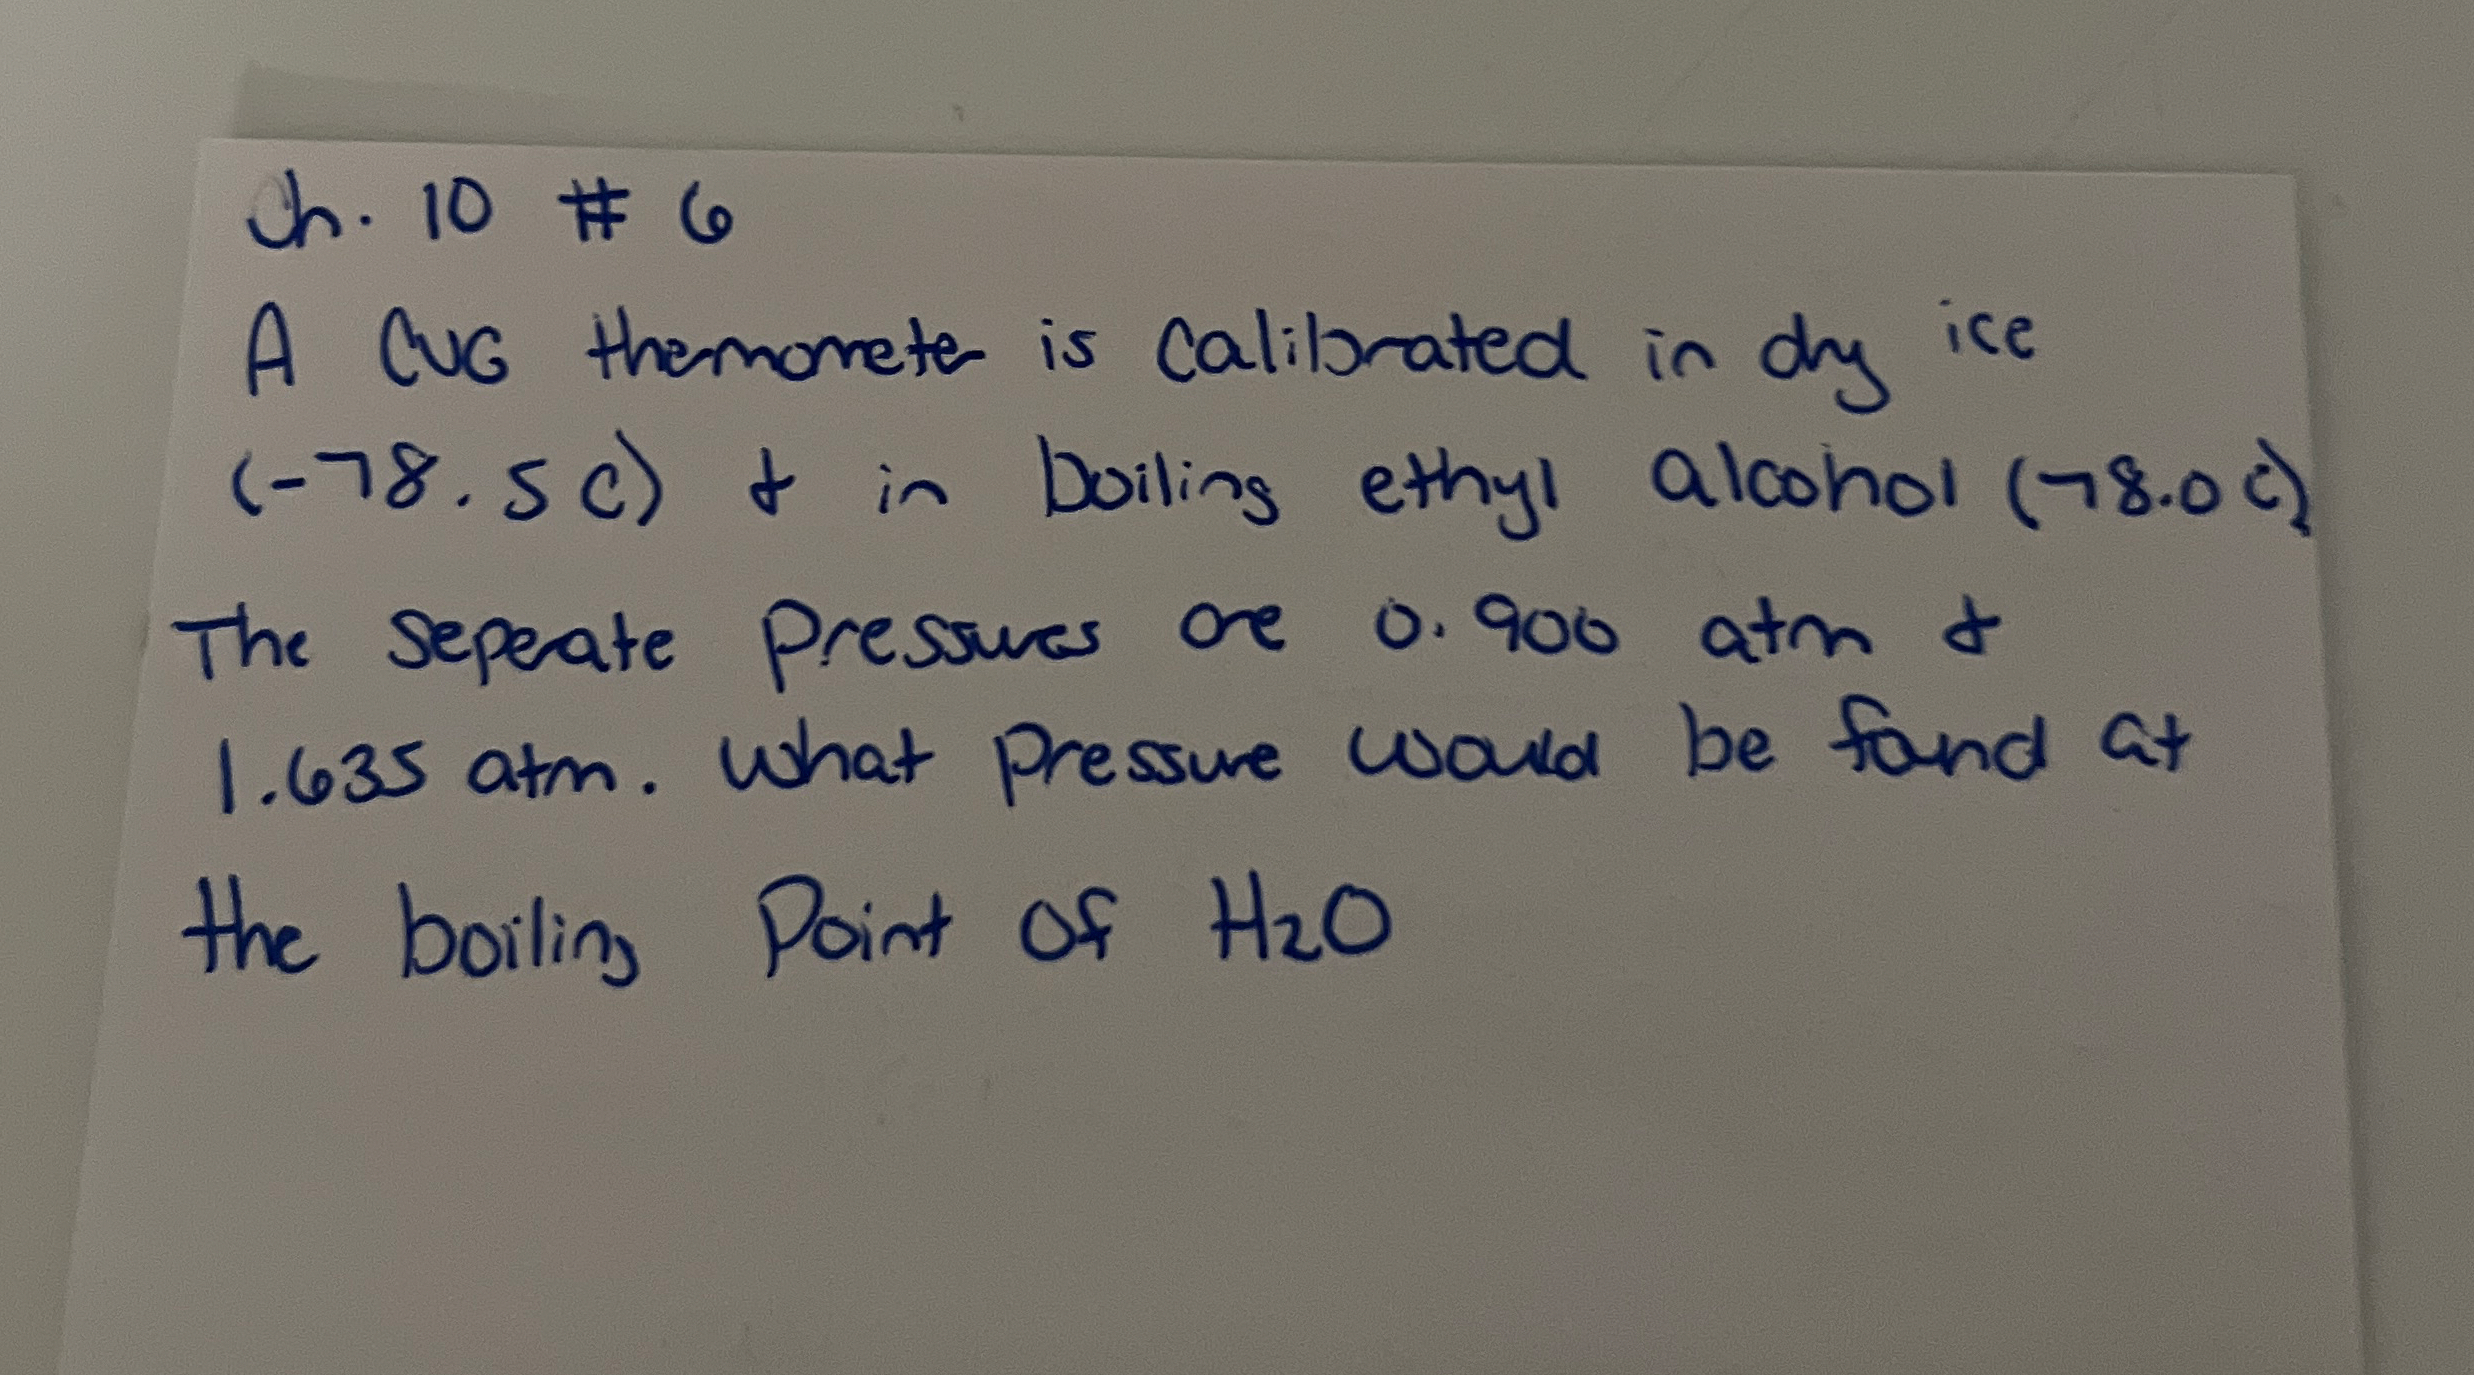 Ch. 10 # 6
A CVG themometer is calibrated in dry ice
(-78.5 C) & in boiling ethyl alcohol (78.0 C)
The seperate pressures are 0.900 atm &
1.635 atm. what pressure would be found at
the boiling point of H2O